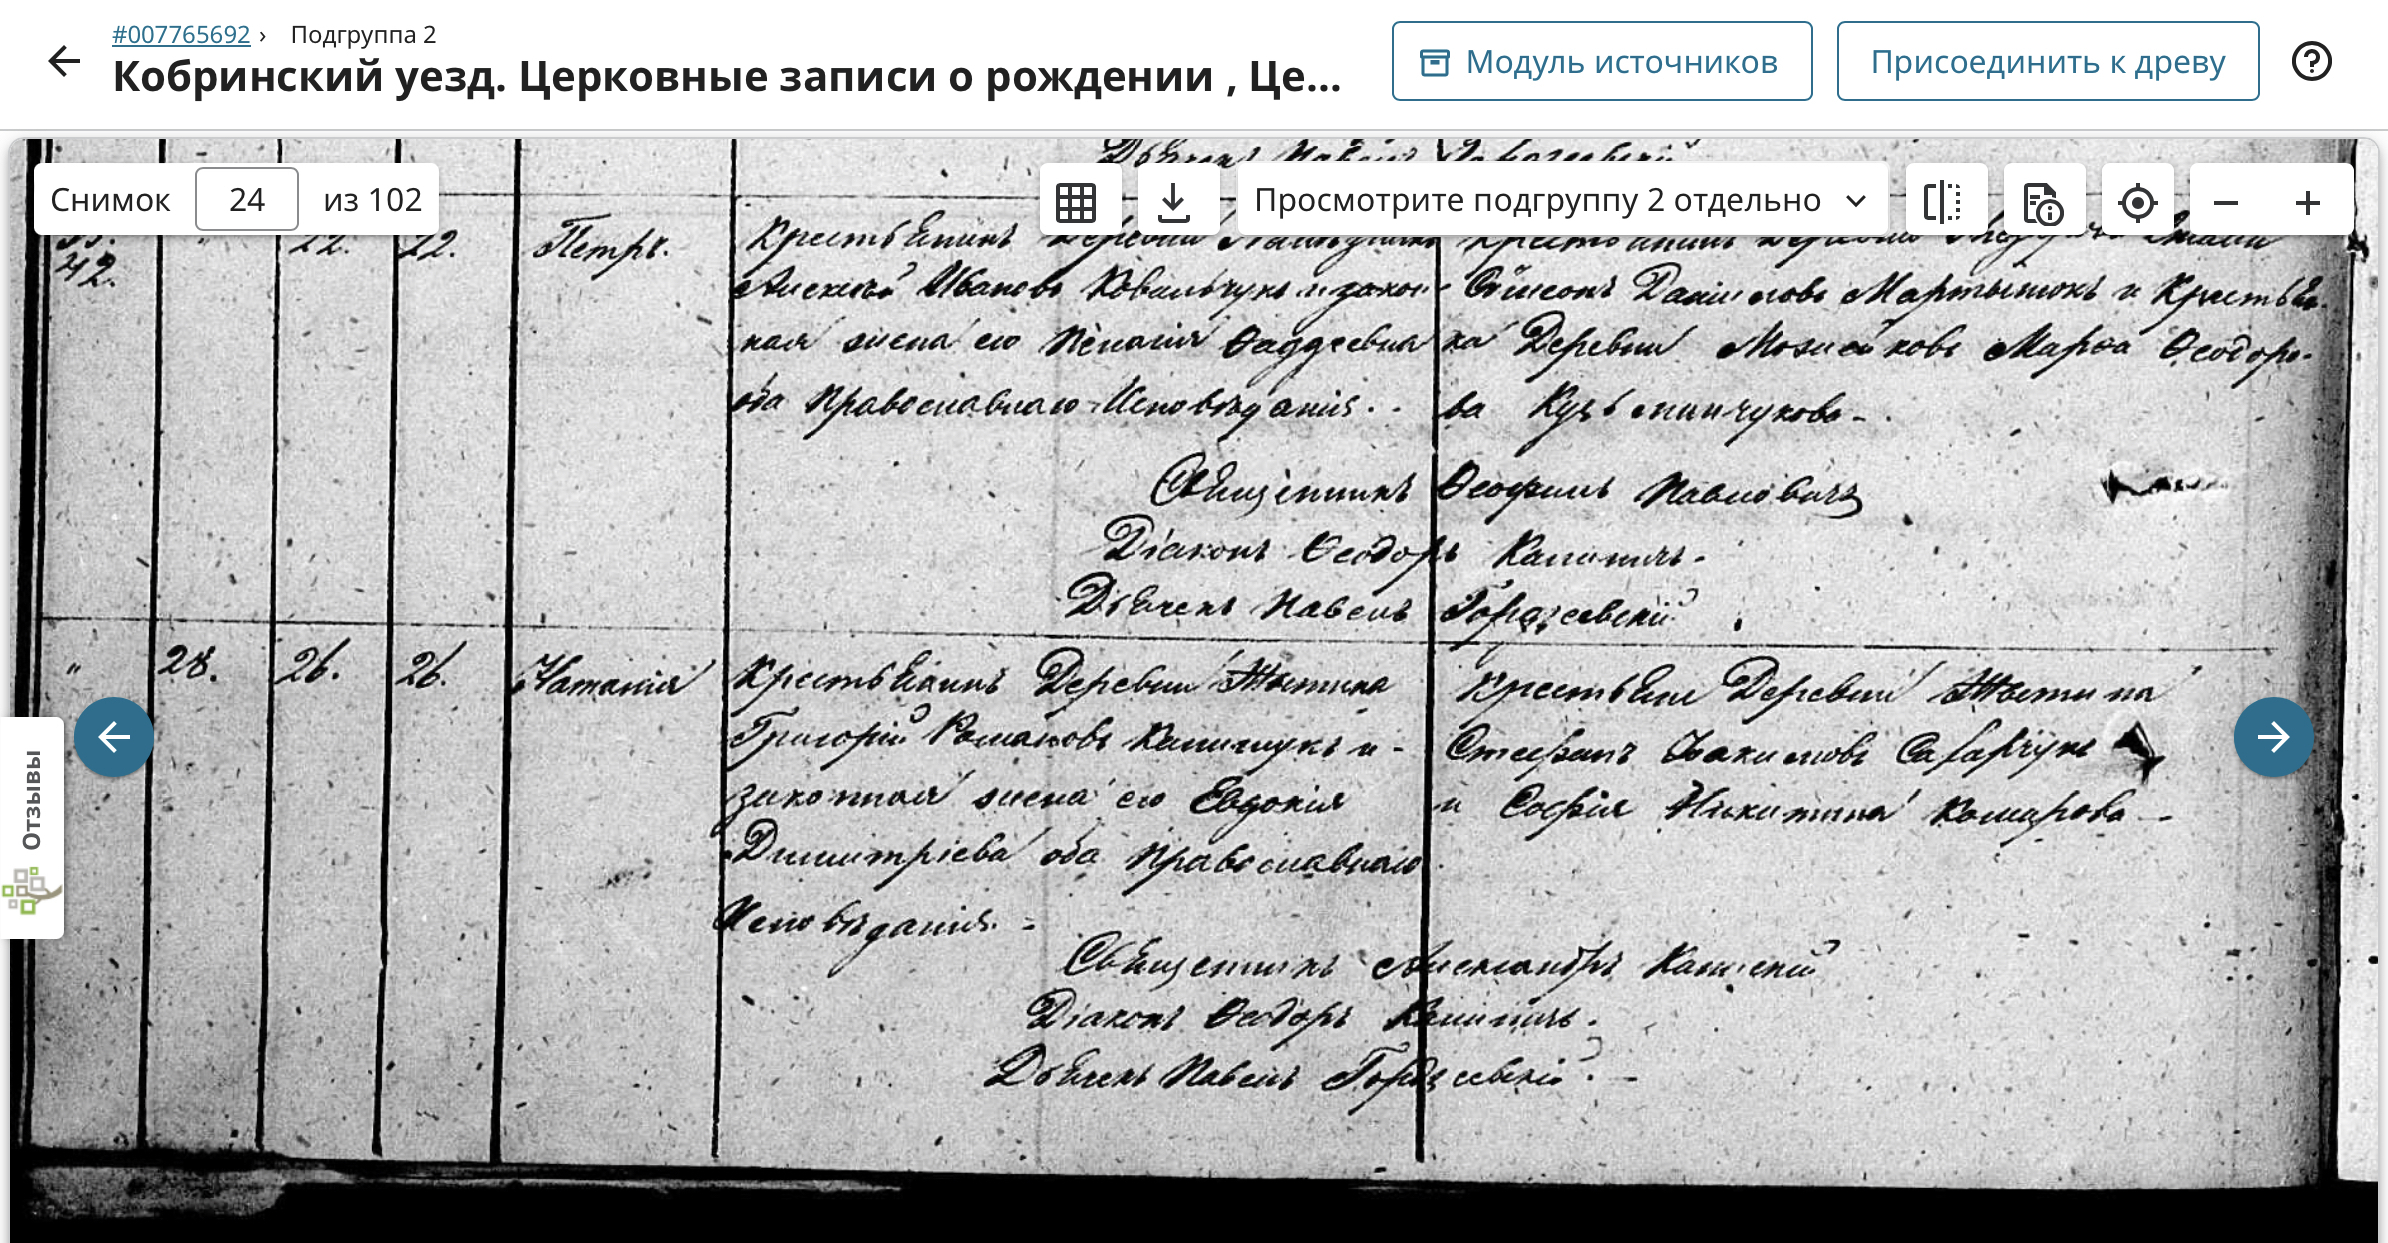 #007765692 › Подгруппа 2
Кобринский уезд. Церковные записи о рождении , Це...
Модуль источников
Присоединить к древу
Снимок 24 из 102
Просмотрите подгруппу 2 отдельно
Отзывы
42.
22. 22. Петръ.
Крестьянинъ Деревни
Алексѣй Ивановъ Ковальчукъ и закон-
ная жена его Пелагія Ѳаддеевна
оба Православнаго Исповѣданія.
Крестьянинъ Деревни
Сѵмеонъ Даниловъ Мартынюкъ и Крестьян-
ка Деревни Мозейковъ Марѳа Ѳеодоро-
ва Кузьминчукова -.
Священникъ Ѳеофилъ Павловичъ
Діаконъ Ѳеодоръ Калишичъ.
Дьячекъ Павелъ Горазсевскій
" 28. 26. 26. Наталія
Крестьянинъ Деревни
Григорій Романовъ Калишукъ и -
законная жена его Евдокія
Димитріева оба Православнаго
Исповѣданія. -
Крестьяне Деревни
Стефанъ Іоакимовъ Сафарчукъ
и Софія Никитина Комарова —
Священникъ Александръ
Діаконъ Ѳеодоръ Калишичъ.
Дьячекъ Павелъ Горазсевскій. —